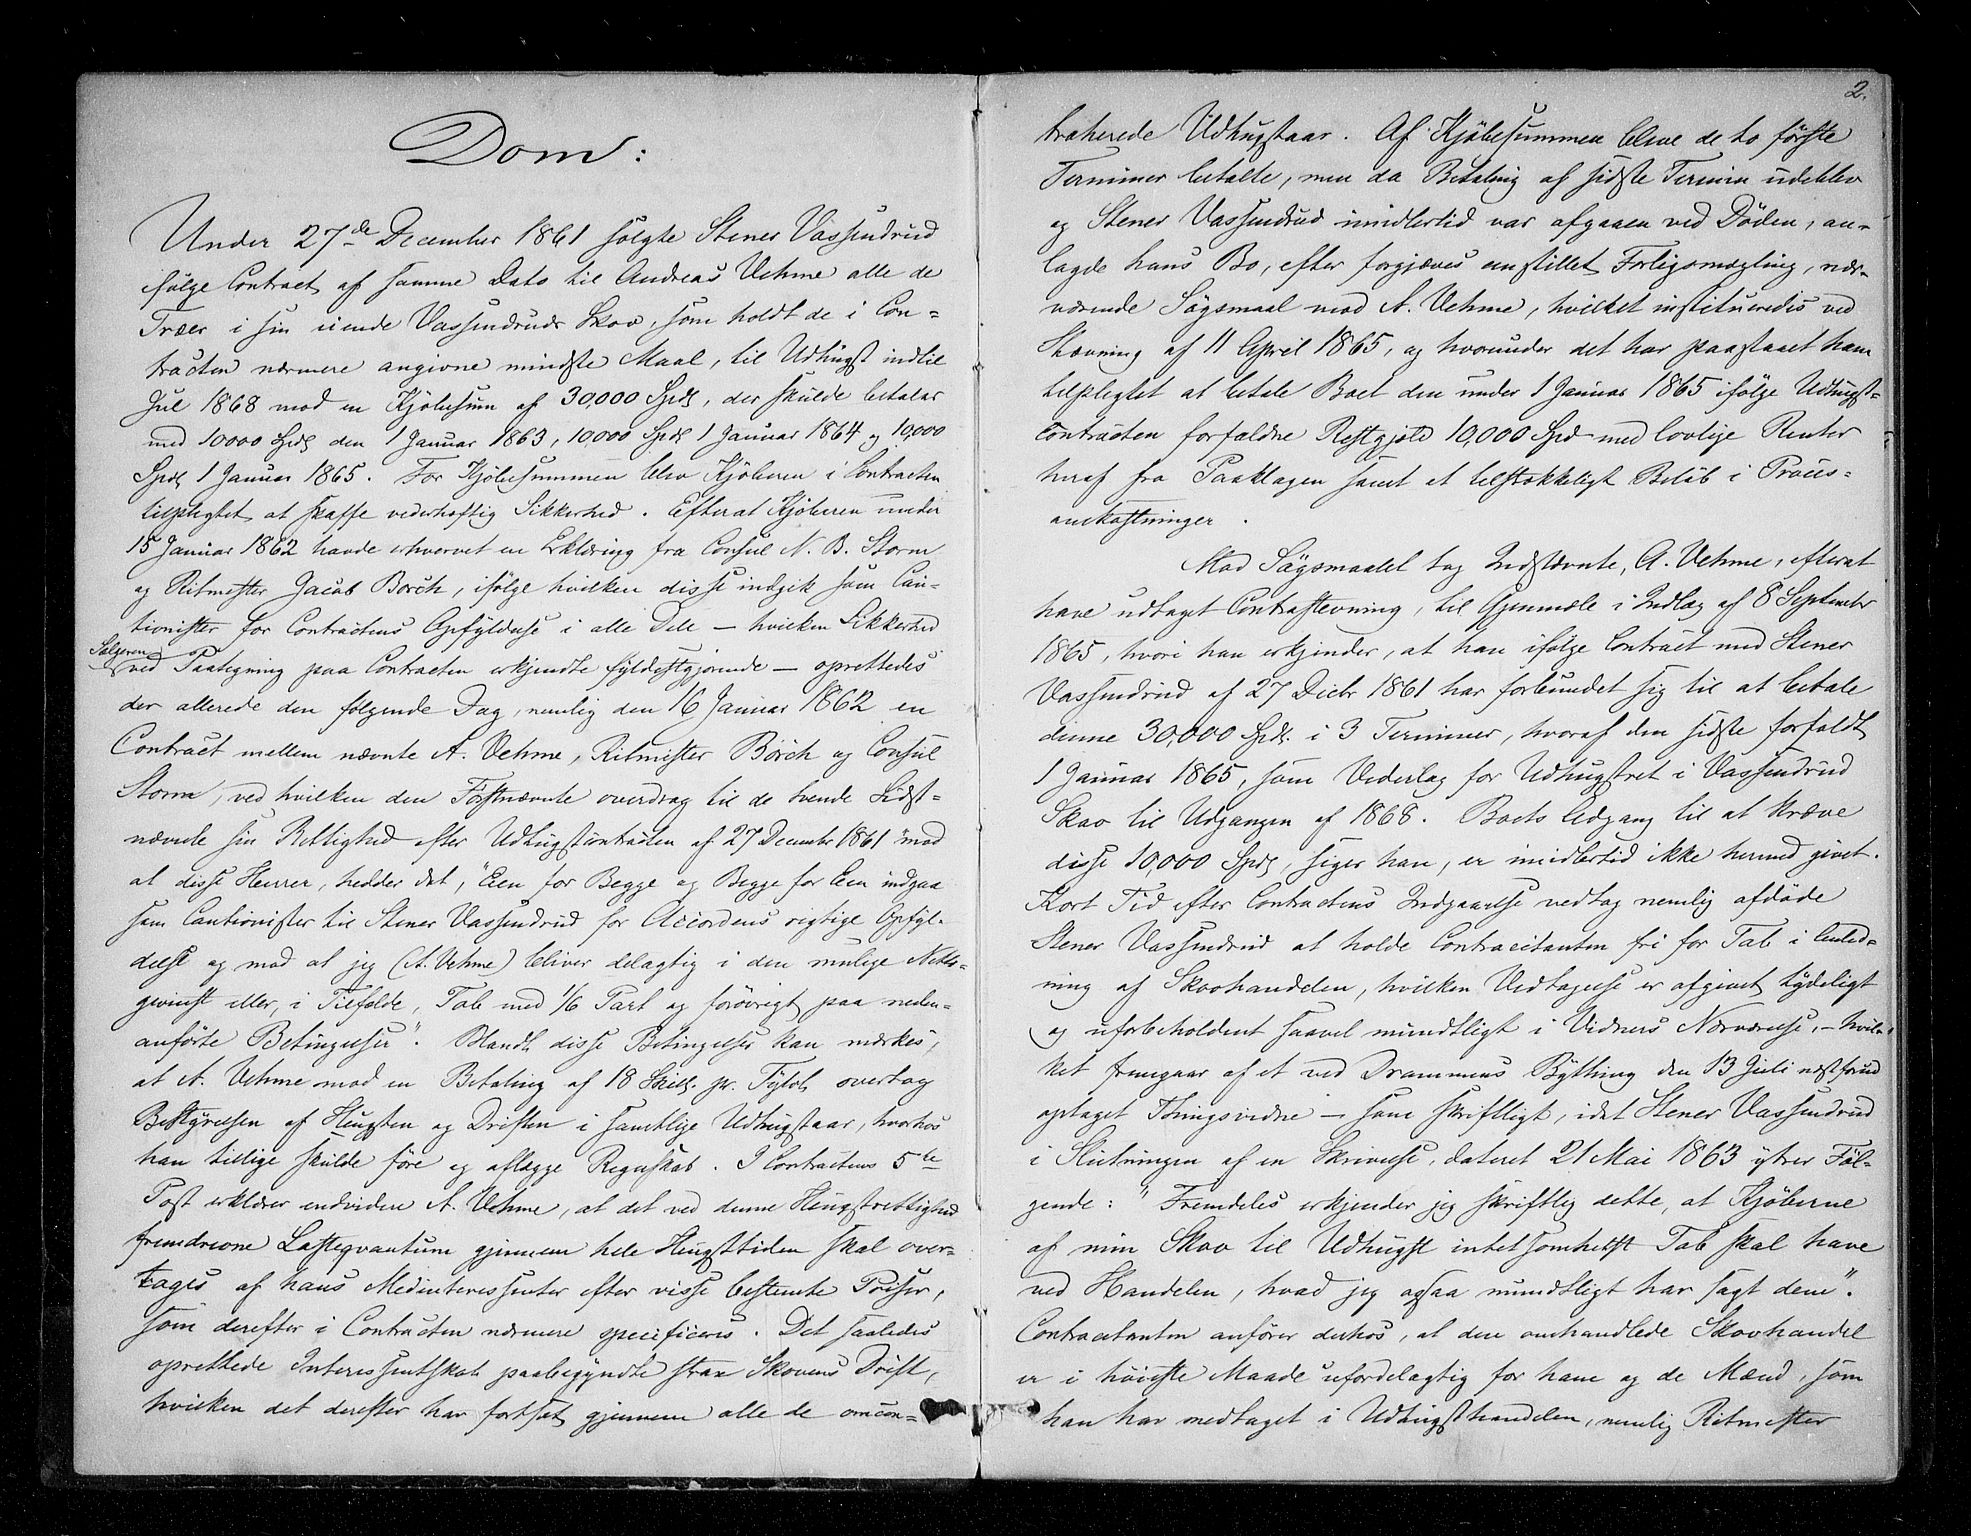 Dom:
Under 27de December 1861 solgte Stener Vassendrud
ifølge Contract af samme Dato til Andreas Vehme alle de
Træer i sin eiende Vassendruds Skov, som holdt de i Con-
tracten nærmere angivne mindste Maal, til Udhugst indtil
Jul 1868 mod en Kjøbesum af 30,000 Spdl, der skulde betales
med 10000 Spdl den 1 Januar 1863, 10,000 Spdl 1 Januar 1864 og 10,000
Spdl 1 Januar 1865. For Kjøbesummen blev Kjøberen i Contracten
tilpligtet at skaffe vederhæftig Sikkerhed. Efterat Kjøberen under
15 Januar 1862 havde erhvervet en Erklæring fra Consul N. B. Storm
og Ritmester Jacob Borch, ifølge hvilken disse indgik som Cau-
tionister for Contractens Opfyldelse i alle Dele — hvilken Sikkerhed
Sælgeren
ved Paategning paa Contracten erkjendte fyldestgjørende — oprettedes
der allerede den følgende Dag, nemlig den 16 Januar 1862 en
Contract mellem nævnte A. Vehme, Ritmester Borch og Consul
Storm, ved hvilken den Førstnævnte overdrog til de tvende Sidst-
nævnte sin Rettighed efter Udhugstcontracten af 27 December 1861 "mod
at disse Herrer, hedder det, "Een for Begge og Begge for Een indgaa
som Cautionister til Stener Vassendrud for Accordens rigtige Opfyl-
delse og mod at jeg (A. Vehme) bliver delagtig i den mulige Netto-
gevinst eller, i Tilfælde, Tab med 1/6 Part og forøvrigt paa neden-
anførte Betingelser". Blandt disse Betingelser kan mærkes,
at A. Vehme mod en Betaling af 18 Skill. pr. Tylvt overtog
Bestyrelsen af Hugsten og Driften i samtlige Udhugstaar, hvorhos
han tillige skulde føre og aflægge Regnskab. I Contractens 5te
Post erklærer endvidere A. Vehme, at det ved denne Hugstrettighed
fremdrevne Lastequantum gjennem hele Hugsttiden skal over-
tages af hans Medinteressenter efter visse bestemte Priser,
som derefter i Contracten nærmere specificeres. Det saaledes
oprettede Interessentskab paabegyndte strax Skovens Drift,
hvilken det derefter har fortsat gjennem alle de omcon-
2.
traherede Udhugstaar. Af Kjøbesummen bleve de to første
Terminer betalte, men da Betaling af sidste Termin udeblev
og Stener Vassendrud imidlertid var afgaaen ved Døden, an-
lagde hans Bo, efter forgjæves anstillet Forligsmægling, nær-
værende Søgsmaal mod A. Vehme, hvilket institueredes ved
Stævning af 11 April 1865, og hvorunder det har paastaaet ham
tilpligtet at betale Boet den under 1 Januar 1865 ifølge Udhugst-
contracten forfaldne Restgjæld 10,000 Spd med lovlige Renter
heraf fra Paaklagen samt et tilstrækkeligt Beløb i Proces-
omkostninger.
Mod Søgsmaalet tog Indstævnte, A. Vehme, efterat
have udtaget Contrastevning, til Gjenmæle i Indlæg af 8 September
1865, hvori han erkjender, at han ifølge Contract med Stener
Vassendrud af 27 Decbr 1861 har forbundet sig til at betale
denne 30,000 Spdl. i 3 Terminer, hvoraf den sidste forfaldt
1 Januar 1865, som Vederlag for Udhugstret i Vassendrud
Skov til Udgangen af 1868. Boets Adgang til at kræve
disse 10,000 Spdl, siger han, er imidlertid ikke hermed givet.
Kort Tid efter Contractens Indgaaelse vedtog nemlig afdøde
Stener Vassendrud at holde Contracitanten fri for Tab i Anled-
ning af Skovhandelen, hvilken Vedtagelse er afgivet tydeligt
og uforbeholdent saavel mundtligt i Vidners Nærværelse, — hvil-
ket fremgaar af et ved Drammens Bything den 13 Juli næstforud
optaget Thingsvidne — som skriftligt, idet Stener Vassendrud
i Slutningen af en Skrivelse, dateret 21 Mai 1863 ytrer Føl-
gende: "Fremdeles erkjender jeg skriftlig dette, at Kjøberne
af min Skov til Udhugst intetsomhelst Tab skal have
ved Handelen, hvad jeg ogsaa mundtligt har sagt dem".
Contracitanten anfører derhos, at den omhandlede Skovhandel
er i høieste Maade ufordelagtig for ham og de Mænd, som
han har medtaget i Udhugsthandelen, nemlig Ritmester